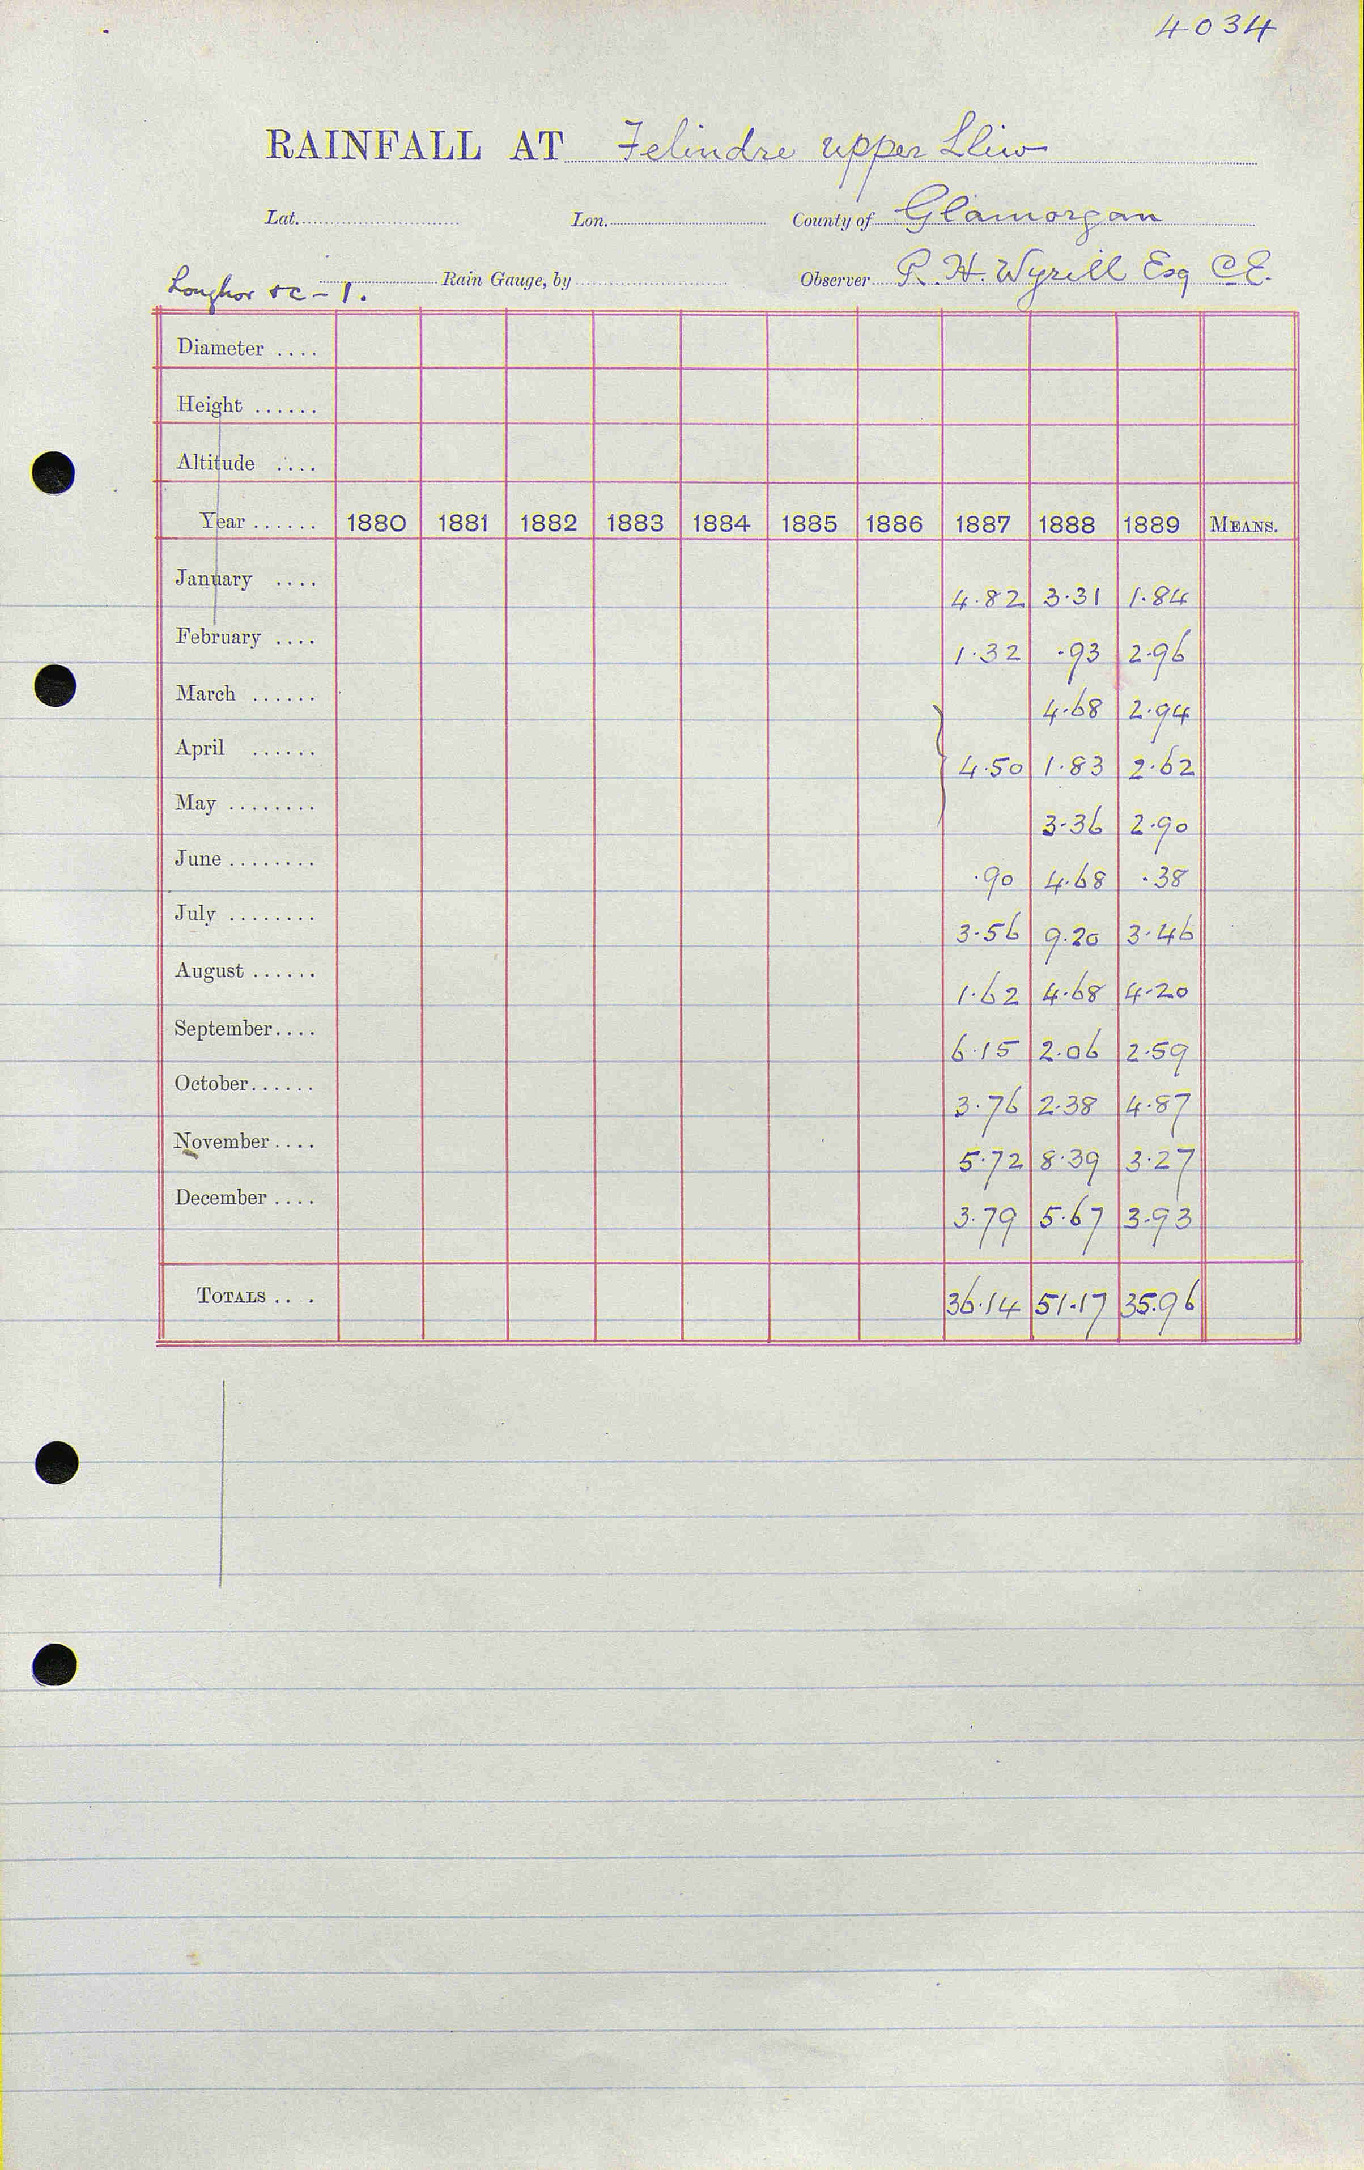 4034
RAINFALL AT Felindre upper Lliw
Lat. Lon. County of Glamorgan
Loughor &c - 1. Rain Gauge, by Observer R. H. Wyrill Esq C.E.
Diameter ....
Height ......
Altitude ....
Year ...... 1880 1881 1882 1883 1884 1885 1886 1887 1888 1889 MEANS.
January .... 4.82 3.31 1.84
February .... 1.32 .93 2.96
March ...... 4.68 2.94
April ...... } 4.50 1.83 2.62
May ........ 3.36 2.90
June ........ .90 4.68 .38
July ........ 3.56 9.20 3.46
August ...... 1.62 4.68 4.20
September.... 6.15 2.06 2.59
October...... 3.76 2.38 4.87
November .... 5.72 8.39 3.27
December .... 3.79 5.67 3.93
TOTALS .. . 36.14 51.17 35.96